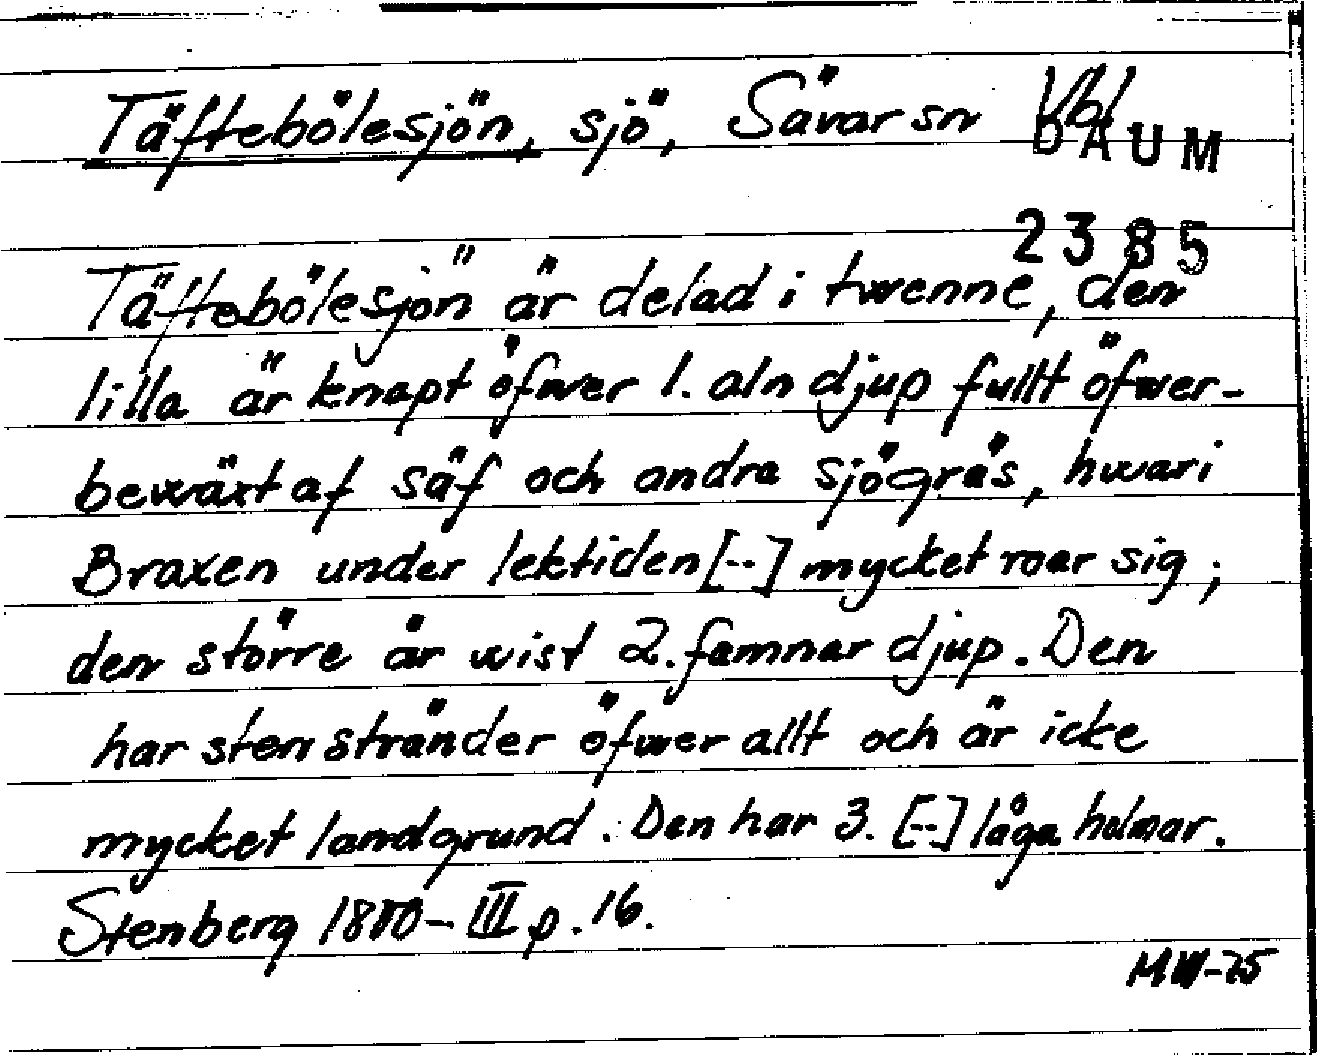 Täftebölesjön, sjö, Sävar sn Vbl
DAUM
2385
Täftebölesjön är delad i twenne, den
lilla är knapt öfwer 1. aln djup fullt öfwer-
bewäxt af säf och andra sjögräs, hwari
Braxen under lektiden [--] mycket roar sig;
den större är wist 2. famnar djup. Den
har sten stränder öfwer allt och är icke
mycket landgrund. Den har 3. [--] låga holmar.
Stenberg 1800-III p. 16.